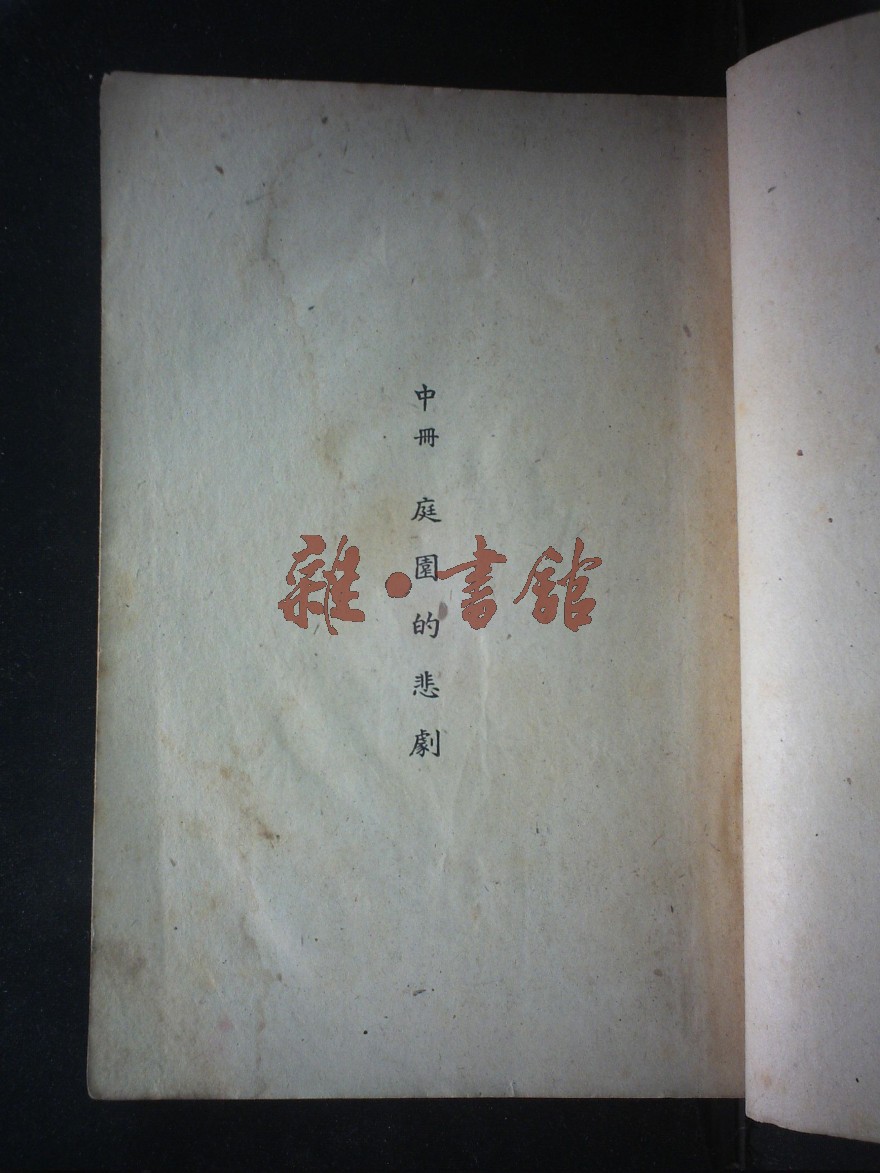 中冊 庭園的悲劇
雜·書館